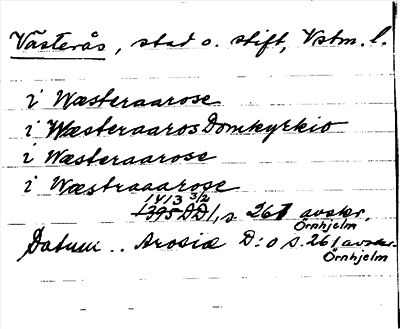 Västerås, stad o. stift, Vstm. l.
i Wæsteraarose
i WæsteraarosDomkyrkio
i Wæsteraarose
i Wæstraaarose
1413 3/2
1395 DD1, s 261 avskr.
Örnhjelm
Datum .. Arosiæ D:o s. 261 avskr.
Örnhjelm